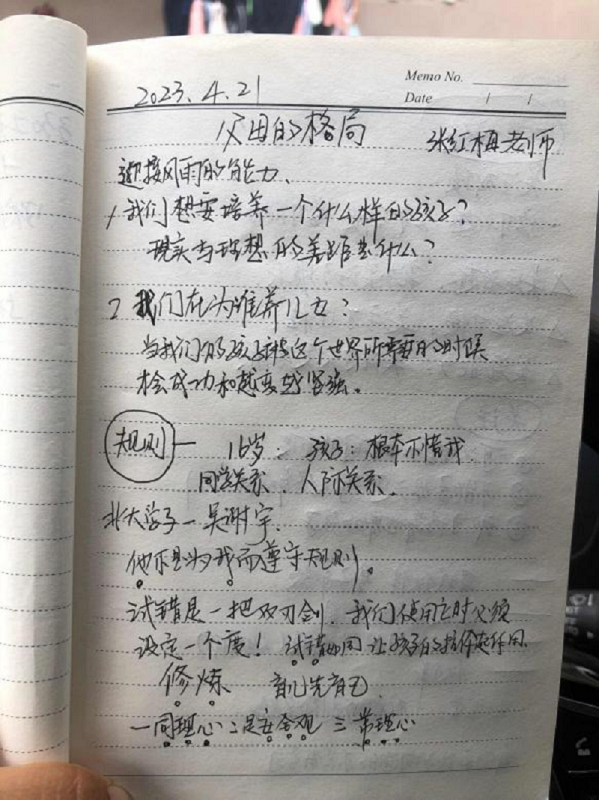 Memo No.
2023.4.21
Date / /
父母的格局 张红梅老师
迎接风雨的能力、
1 我们想要培养一个什么样的孩子?
现实与理想的差距是什么?
2 我们在为谁养儿女?
当我们的孩子被这个世界所需要的时候
才会成功和越变越坚强。
规则 — 16岁: 孩子:根本不懂我
同学关系、人际关系、
北大学子—吴谢宇、
他不是为我而遵守规则。
试错是一把双刃剑、我们使用它时必须
设定一个度!试错如同 让孩子的
修炼 育儿先育己
一同理心 二是安全观 三 常理心